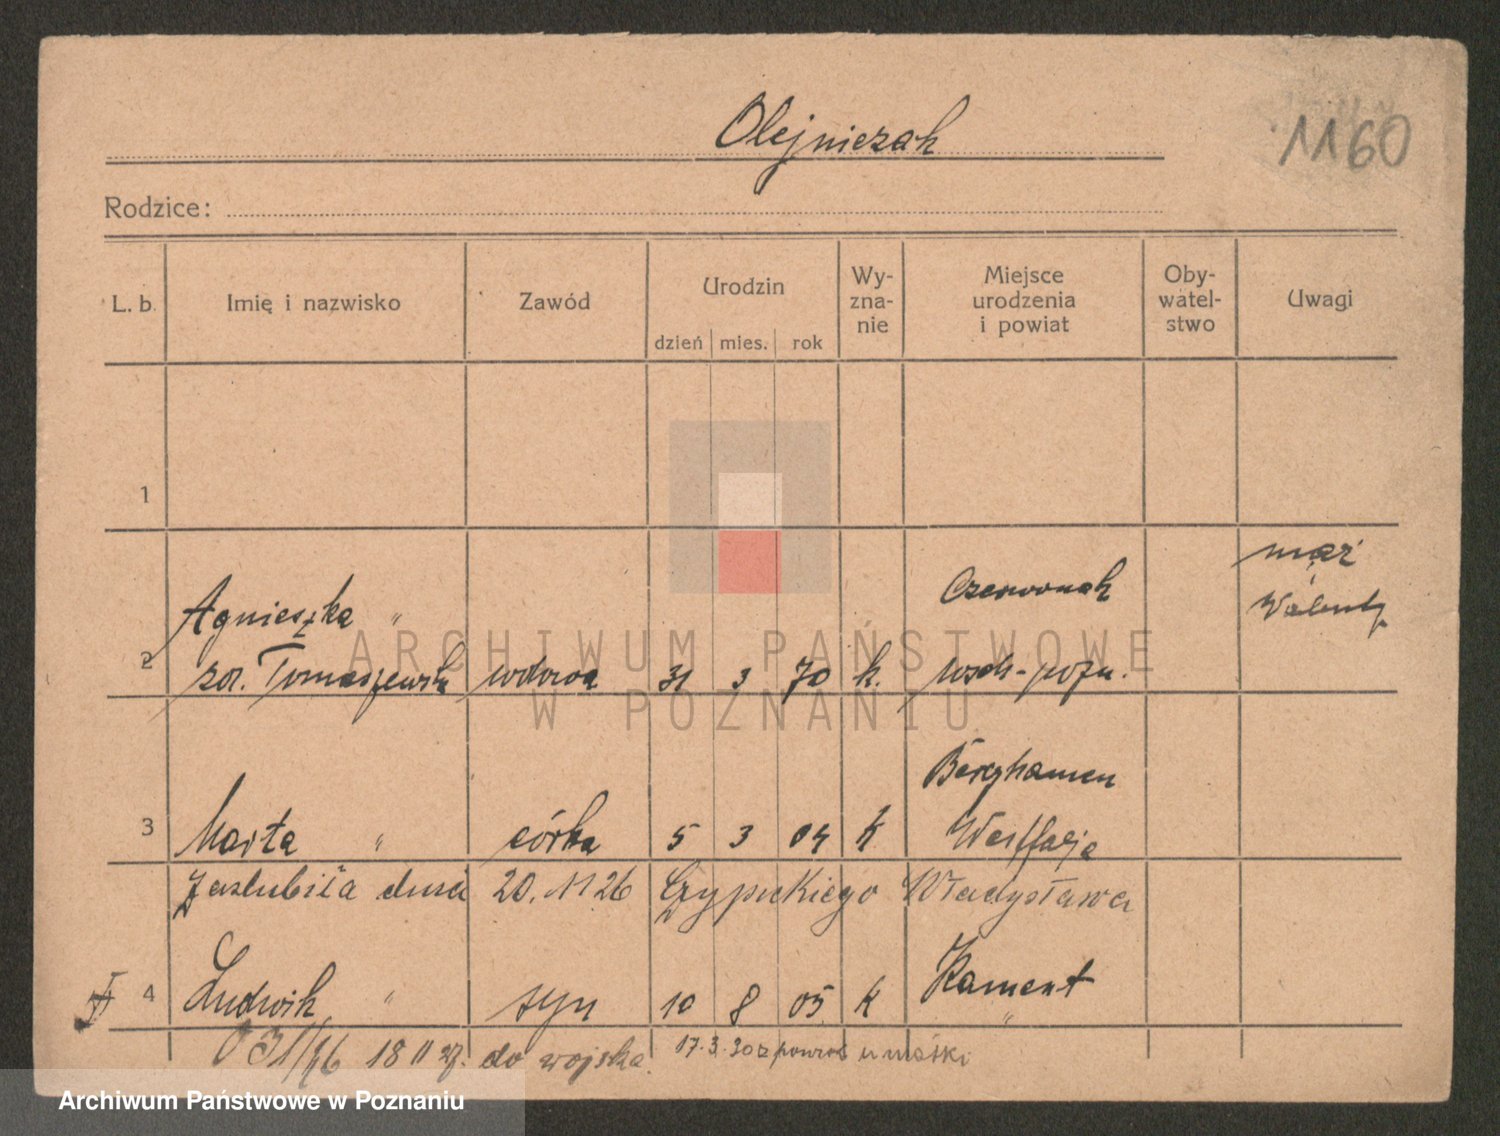 Olejniczak
1160
Rodzice:
L. b. Imię i nazwisko Zawód Urodzin dzień mies. rok Wy-zna-nie Miejsce urodzenia i powiat Oby-watel-stwo Uwagi
1
mąż
Czerwonak Walenty
Agnieszka "
2 zar. Tomaszewska wdowa 31 3 70 k. wsch-pozn.
ARCHIWUM PAŃSTWOWE
W POZNANIU
Berghamen
3 Marta " córka 5 3 04 k Westfalja
zaslubiła dnia 20. 11 26 Władysława
Kament
4 Ludwik " syn 10 8 05 k "
18 11 do wojska. 17.3.30 z powrot u matki
Archiwum Państwowe w Poznaniu